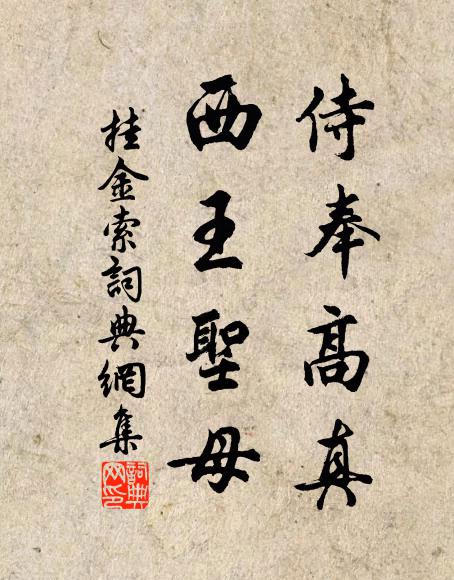 侍奉高真
西王聖母
挂金索詞典網集
詞典網印